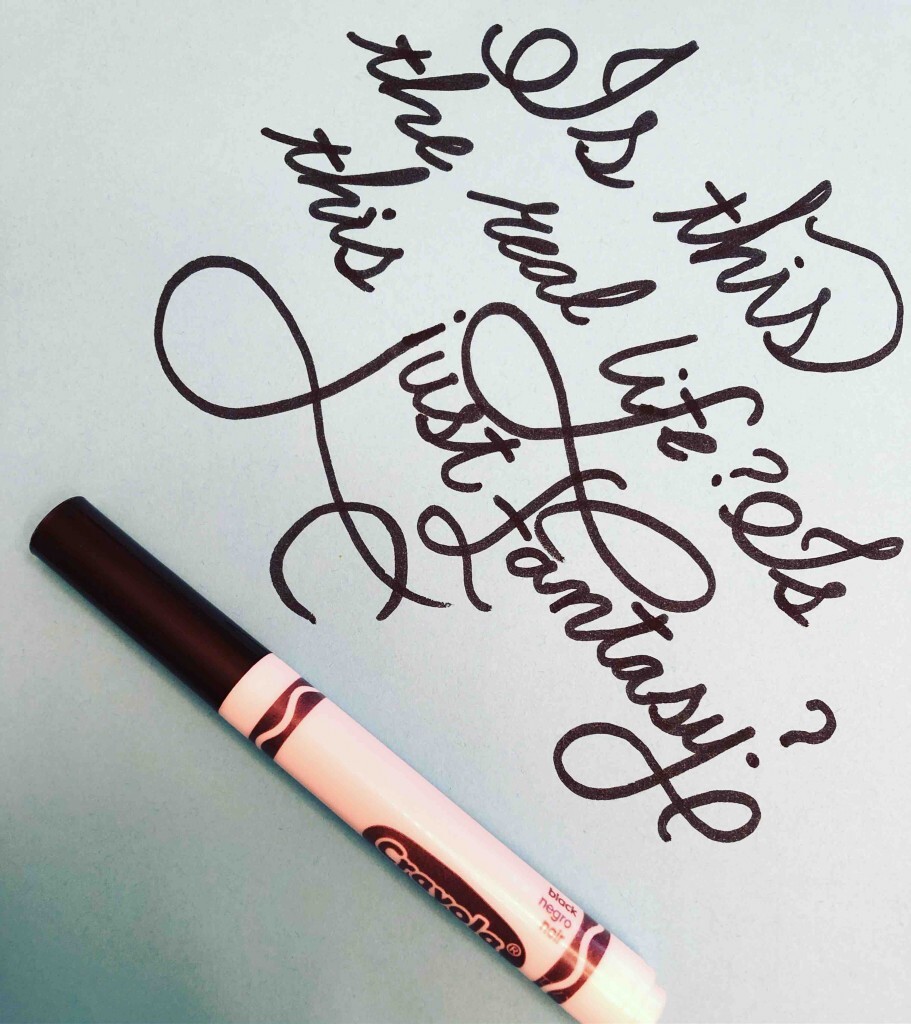 Is this
the real life? Is
this just fantasy?
Crayola®
black
negro
noir